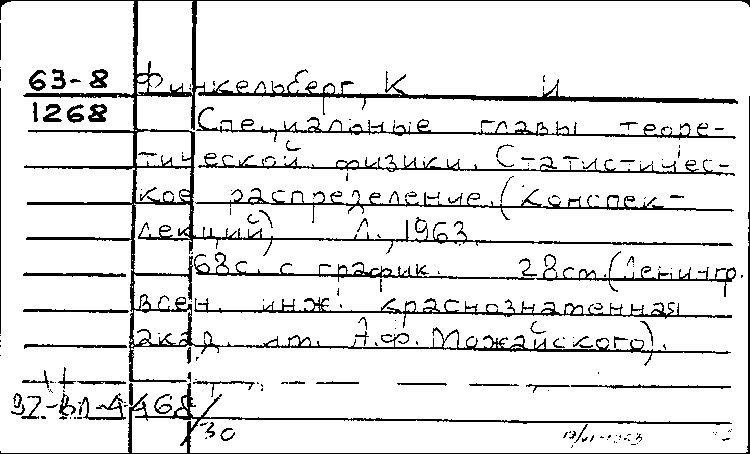 63-8 Финкельберг, К И
1268 Специальные главы теоре-
тической физики. Статистичес-
кое распределение. (Конспек-
лекций) Л., 1963.
68с. с график. 28см. (Ленингр.
воен. инж. краснознаменная
акад. им. А.Ф. Можайского).
92-ВЛ-4468/30